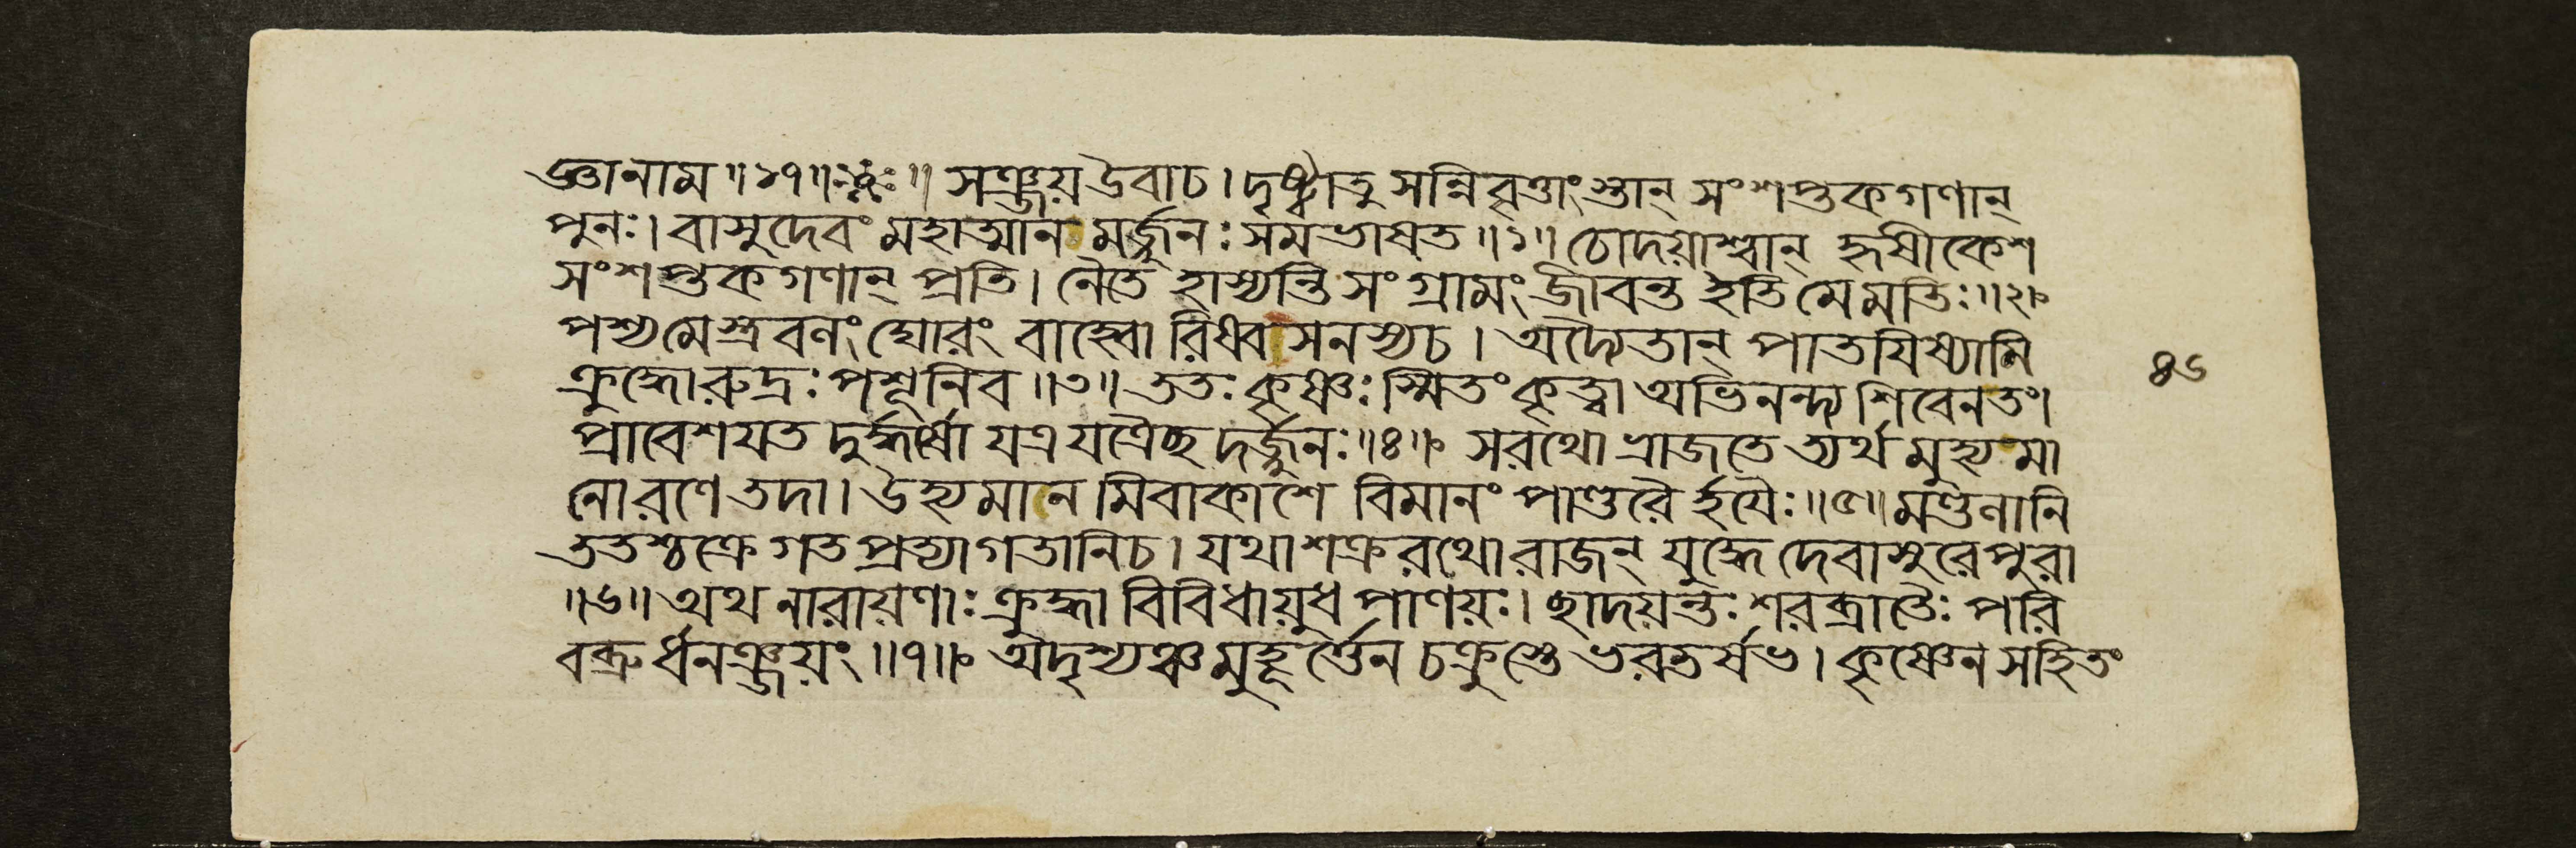 জ্ঞানাম ॥১৭॥ঃঃ॥ সঞ্জয় উবাচ। দৃষ্ট্বাতু সন্নিবৃত্তাংস্তান্ সংশপ্তকগণান্
পুনঃ। বাসুদেবং মহাত্মান মর্জ্জুনঃ সমভাষত ॥১॥ চোদয়াশ্বান্ হৃষীকেশ
সংশপ্তকগণান্ প্রতি। নৈতে হাস্যন্তি সংগ্রামং জীবন্ত ইতি মে মতিঃ ॥২॥
পশ্য মেস্ত্রবণং ঘোরং বাহ্বো রিষ্বাসনস্যচ। অদ্যৈতান্ পাতযিষ্যামি
ক্রুদ্ধোরুদ্রঃ পশূনিব ॥৩॥ ততঃ কৃষ্ণঃ স্মিতংকৃত্বা অভিনন্দ্য শিবেনতং।
প্রাবেশযত দুর্দ্ধর্ষো যত্র যত্রৈচ্ছ দর্জ্জুনঃ ॥৪॥ সরথো ভ্রাজতে ত্যর্থ মুহ্যমা
নোরণে তদা। উহ্যমান মিবাকাশে বিমানং পাণ্ডুরৈ র্হযৈঃ ॥৫॥ মণ্ডলানি
ততশ্চক্রে গতপ্রত্যাগতানিচ। যথাশক্ররথোরাজন্ যুদ্ধে দেবাসুরেপুরা
॥৬॥ অথ নারায়ণাঃ ক্রুদ্ধা বিবিধায়ুধ পাণয়ঃ। ছাদয়ন্তঃ শরব্রাতৈঃ পরি
বব্রু র্ধনঞ্জয়ং ॥৭॥ অদৃশ্যঞ্চ মুহূর্ত্তেন চক্রুস্তে ভরতর্ষভ। কৃষ্ণেন সহিতং
৪৬